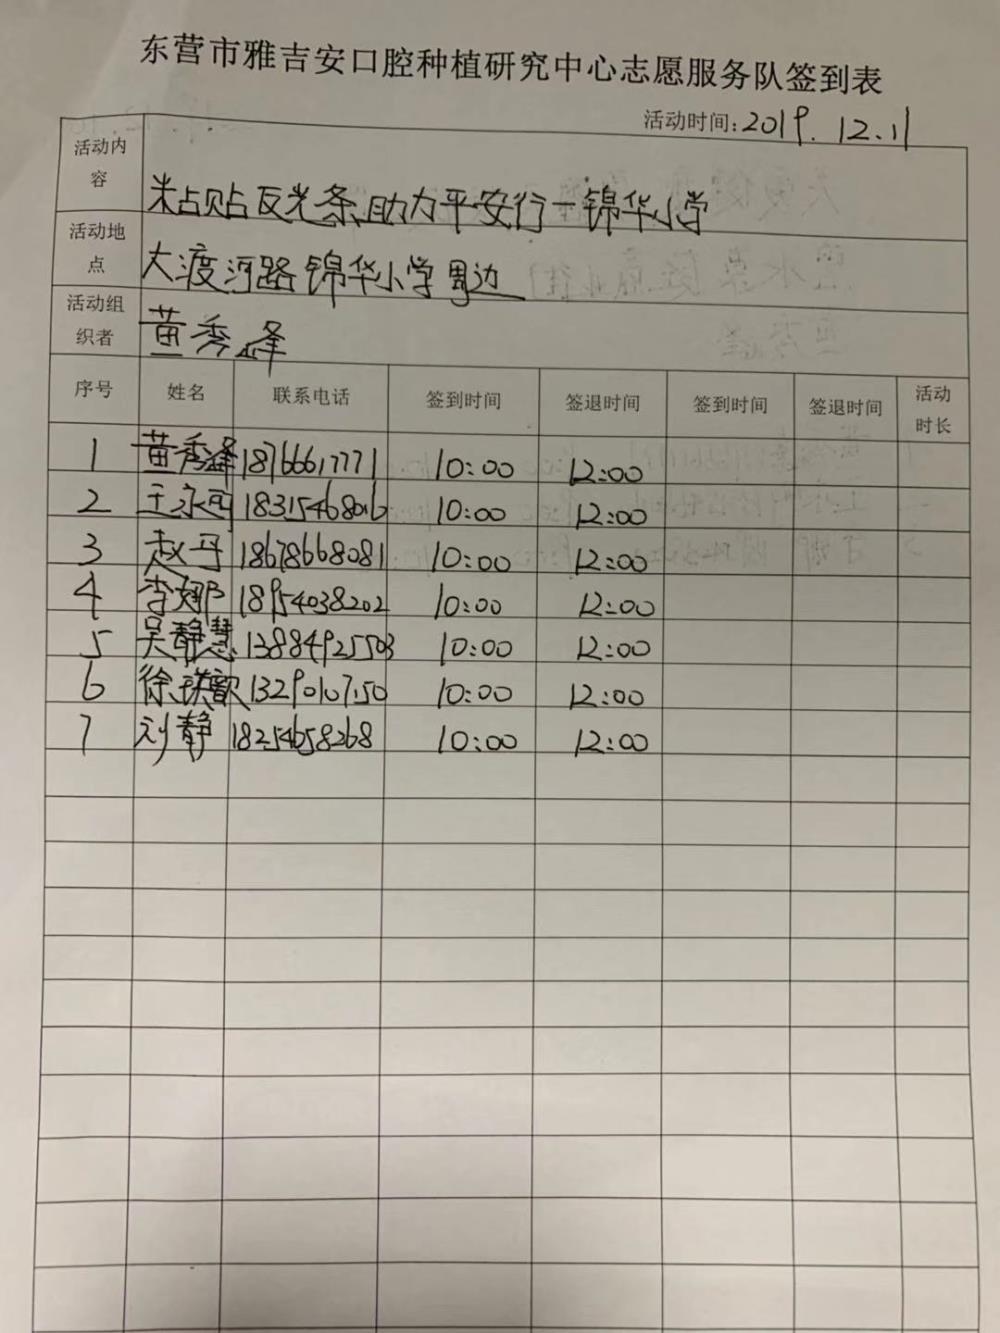 东营市雅吉安口腔种植研究中心志愿服务队签到表
活动时间:2019.12.11
活动内容 粘贴反光条,助力平安行—锦华小学
活动地点 大渡河路锦华小学周边
活动组织者 黄秀峰
序号 姓名 联系电话 签到时间 签退时间 签到时间 签退时间 活动时长
1 黄秀峰 18766617771 10:00 12:00
2 王永可 18315468016 10:00 12:00
3 赵丹 18678668081 10:00 12:00
4 李娜 18954038202 10:00 12:00
5 吴静慧 13884925503 10:00 12:00
6 徐瑛歆 13290107150 10:00 12:00
7 刘静 18254658268 10:00 12:00